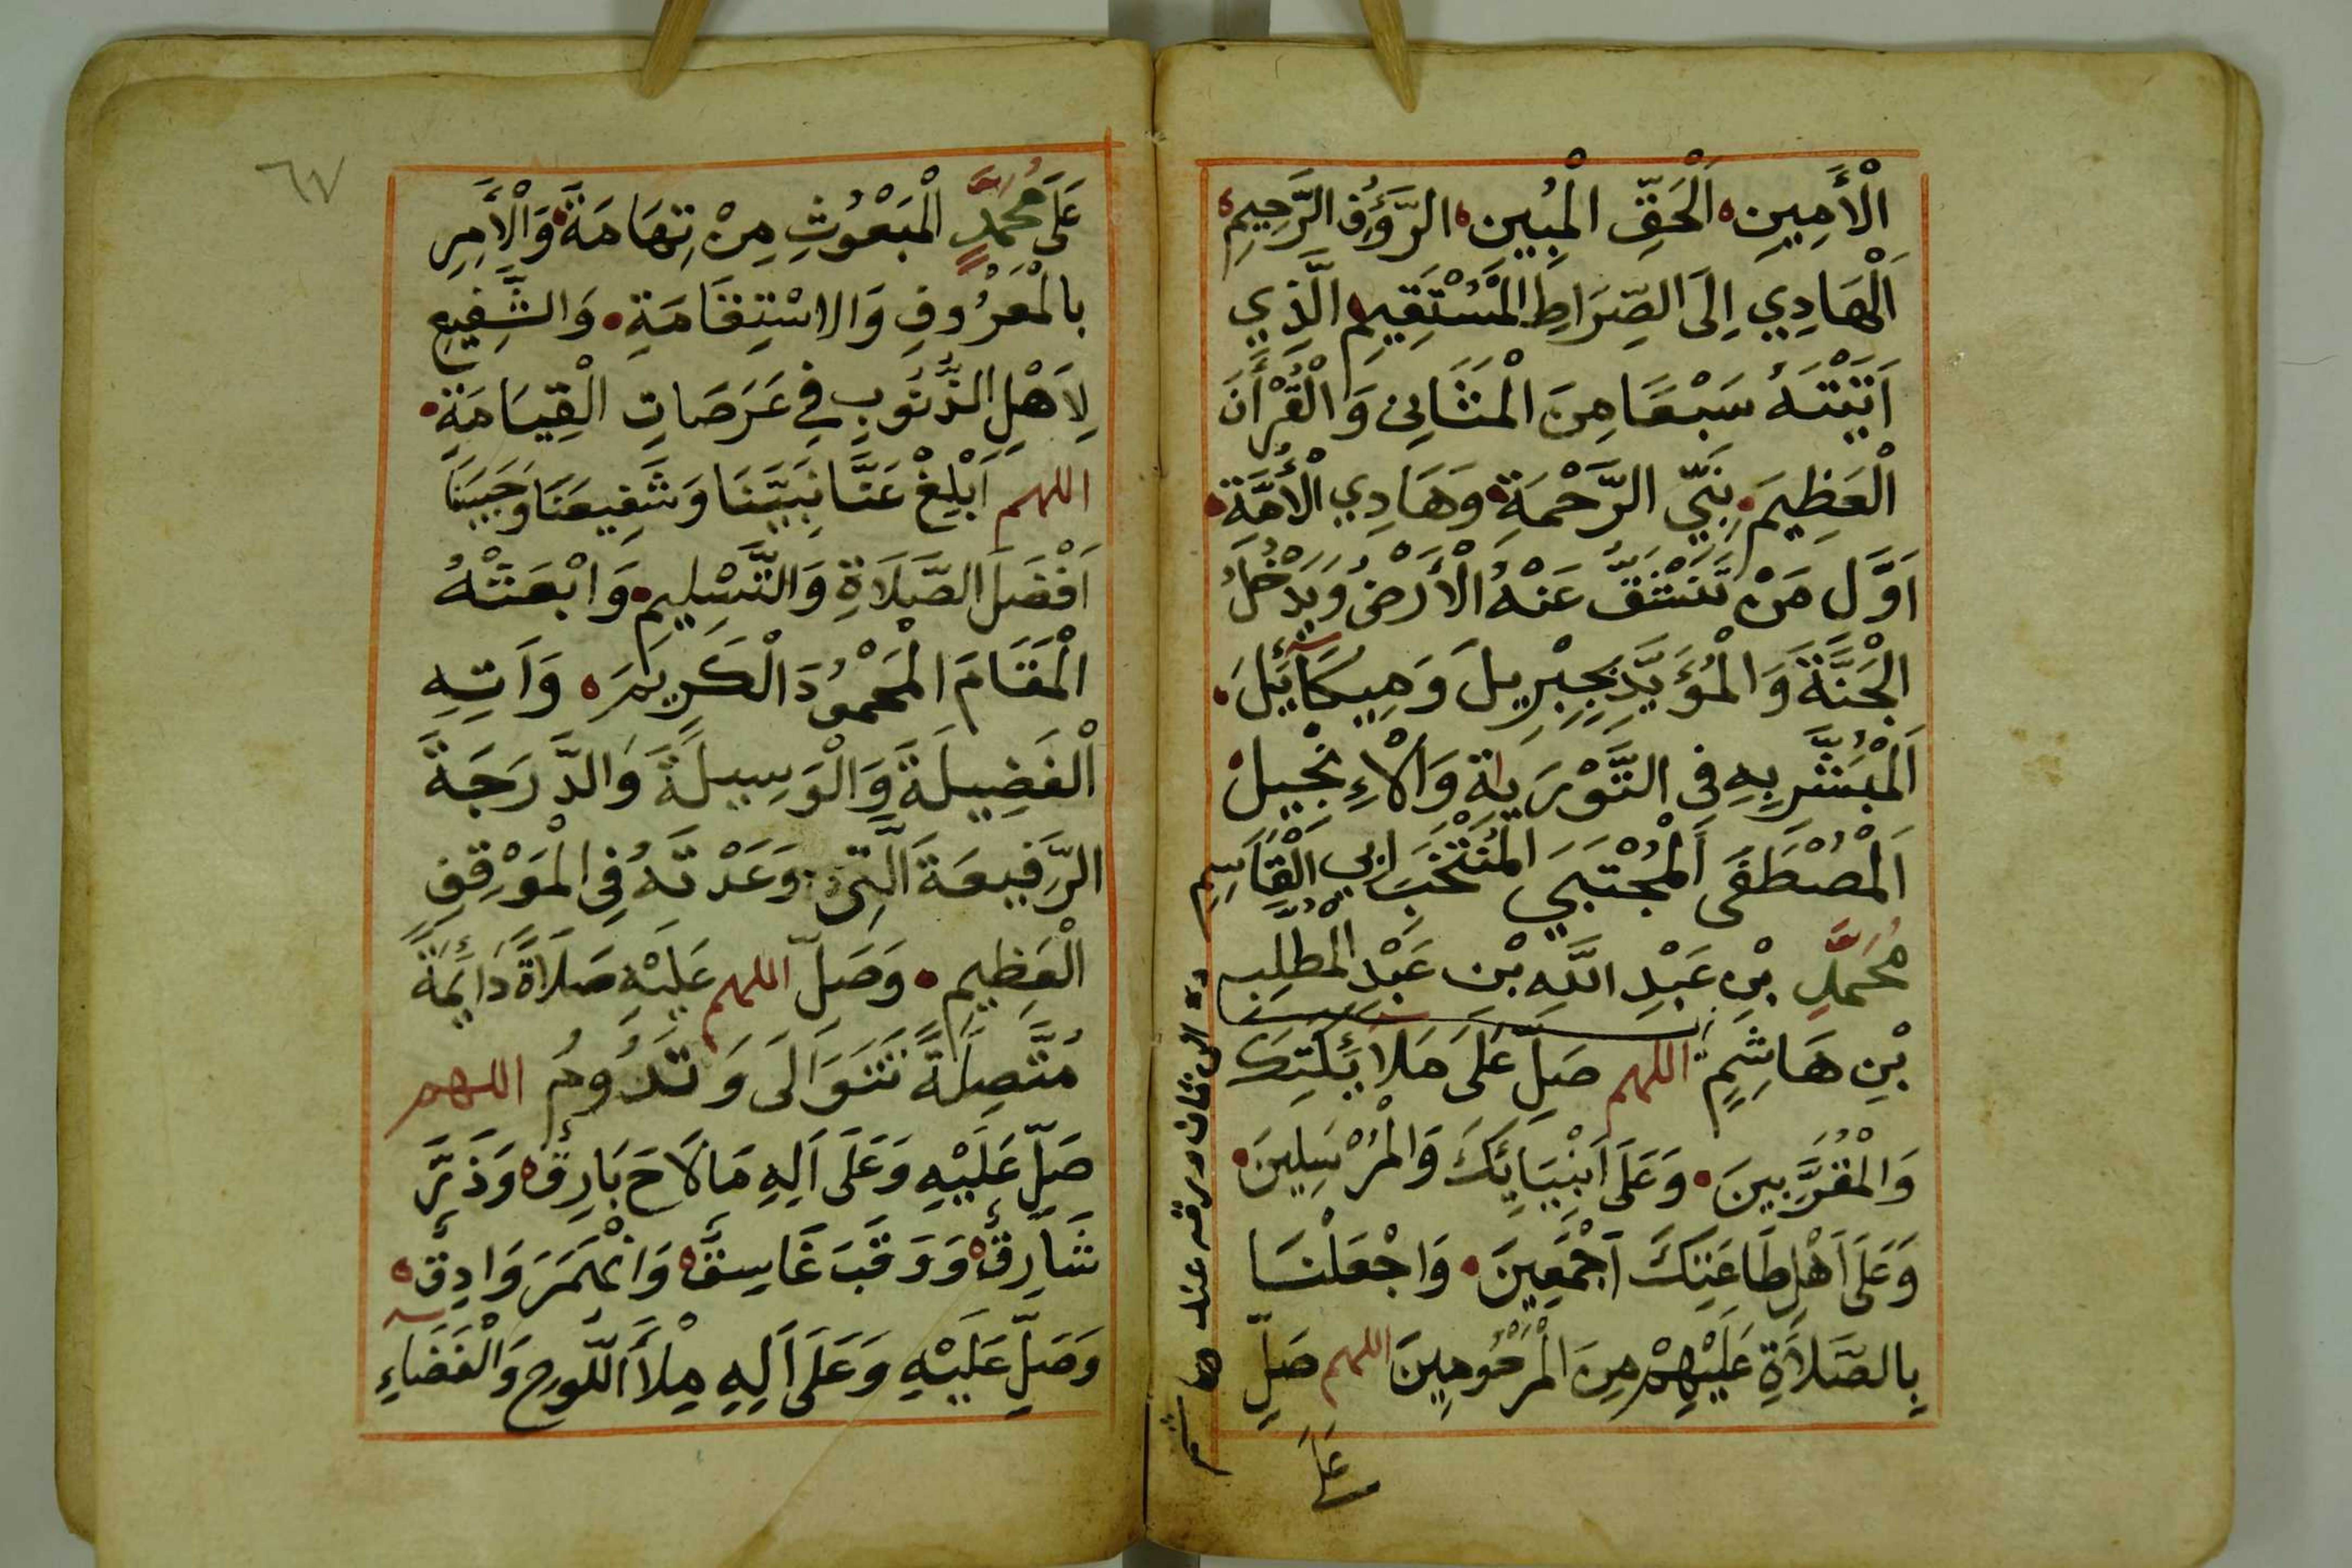 الْأَمِينِ اَلْحَقِّ الْمُبِينِ الرَّؤُفِ الرَّحِيمِ
اَلْهَادِي اِلَى الصِّرَاطِ الْمُسْتَقِيمِ الَّذِي
اَتَيْتَهُ سَبْعًا مِنَ الْمَثَانِى وَالْقُرْأَنَ
الْعَظِيمَ نَبِيِّ الرَّحْمَةِ وَهَادِي الْأُمَّةِ
اَوَّلِ مَنْ تَنْشَقُّ عَنْهُ الْأَرْضُ وَيَدْخُلُ
الْجَنَّةَ وَالْمُؤَيَّدِ بِجِبْرِيلَ وَمِيكَائِيلَ
اَلْمُبَشَّرِ بِهِ فِى التَّوْرَيةِ وَالْاِنْجِيلِ
اَلْمُصْطَفَى اَلْمُجْتَبَي الْمُنْتَخَبَ ابي الْقَاسِمِ
مُحَمَّدٍ بْنِ عَبْدِ اللَّهِ بْنِ عَبْدِ الْمُطَّلِبِ
بْنِ هَاشِمٍ اللهم صَلِّ عَلَى مَلَائِكَتِكَ
وَالْمُقَرَّبِينَ وَعَلَى اَنْبِيَائِكَ وَالْمُرْسَلِينَ
وَعَلَى اَهْلِ طَاعَتِكَ اَجْمَعِينَ وَاجْعَلْنَا
بِالصَّلَاةِ عَلَيْهِمْ مِنَ الْمَرْحُومِينَ اللهم صَلِّ
عَلَى
٦٧
عَلَى مُحَمَّدٍ الْمَبْعُوثِ مِنْ تِهَامَةَ وَالْأَمِرِ
بِالْمَعْرُوفِ وَالاسْتِقَامَةِ وَالشَّفِيعِ
لِاَهْلِ الذُّنُوبِ فِي عَرَصَاتِ الْقِيَامَةِ
اللهم اَبْلِغْ عَنَّا نَبِيَّنَا وَشَفِيعَنَا وَحَبِيبَنَا
اَفْضَلَ الصَّلَاةِ وَالتَّسْلِيمِ وَابْعَثْهُ
الْمَقَامَ الْمَحْمُودَ الْكَرِيمَ وَاَتِهِ
الْفَضِيلَةَ وَالْوَسِيلَةَ وَالدَّرَجَةَ
الرَّفِيعَةَ الَّتِى وَعَدْتَهُ فِى الْمَوْقِفِ
الْعَظِيمِ وَصَلِّ اللهم عَلَيْهِ صَلَاةً دَائِمَةً
مُتَّصِلَةً تَتَوَالَى وَتَدُومُ اللهم
صَلِّ عَلَيْهِ وَعَلَى اَلِهِ مَا لَاحَ بَارِقٌ وَذَرَّ
شَارِقٌ وَوَقَبَ غَاسِقٌ وَانْهَمَرَ وَادِقٌ
وَصَلِّ عَلَيْهِ وَعَلَى اَلِهِ مِلْأَ اللَّوحِ وَالْفَضَاءِ